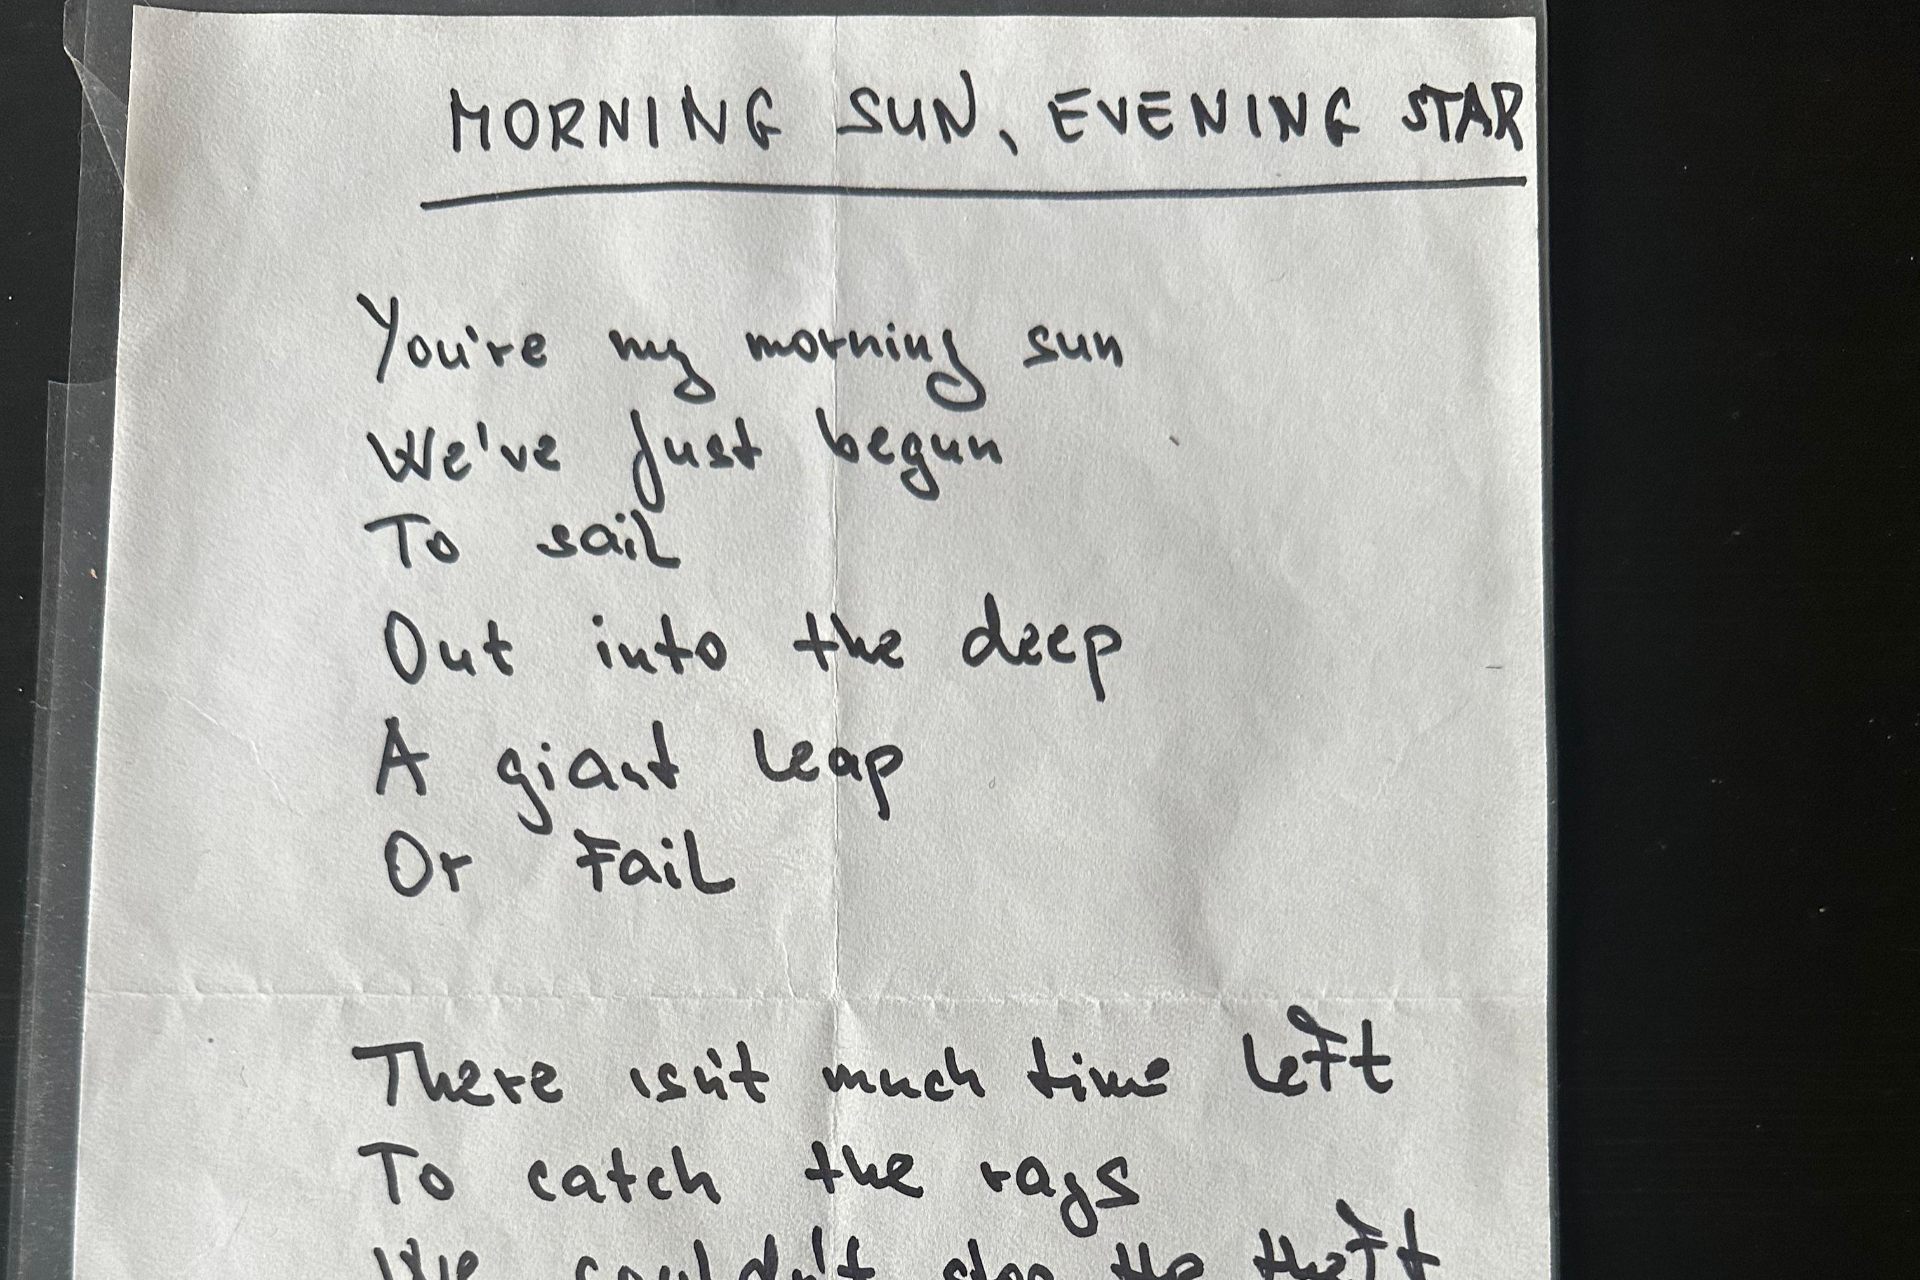 MORNING SUN, EVENING STAR
You're my morning sun
We've just begun
To sail
Out into the deep
A giant leap
Or Fail
There isn't much time left
To catch the rays
We couldn't stop the theft